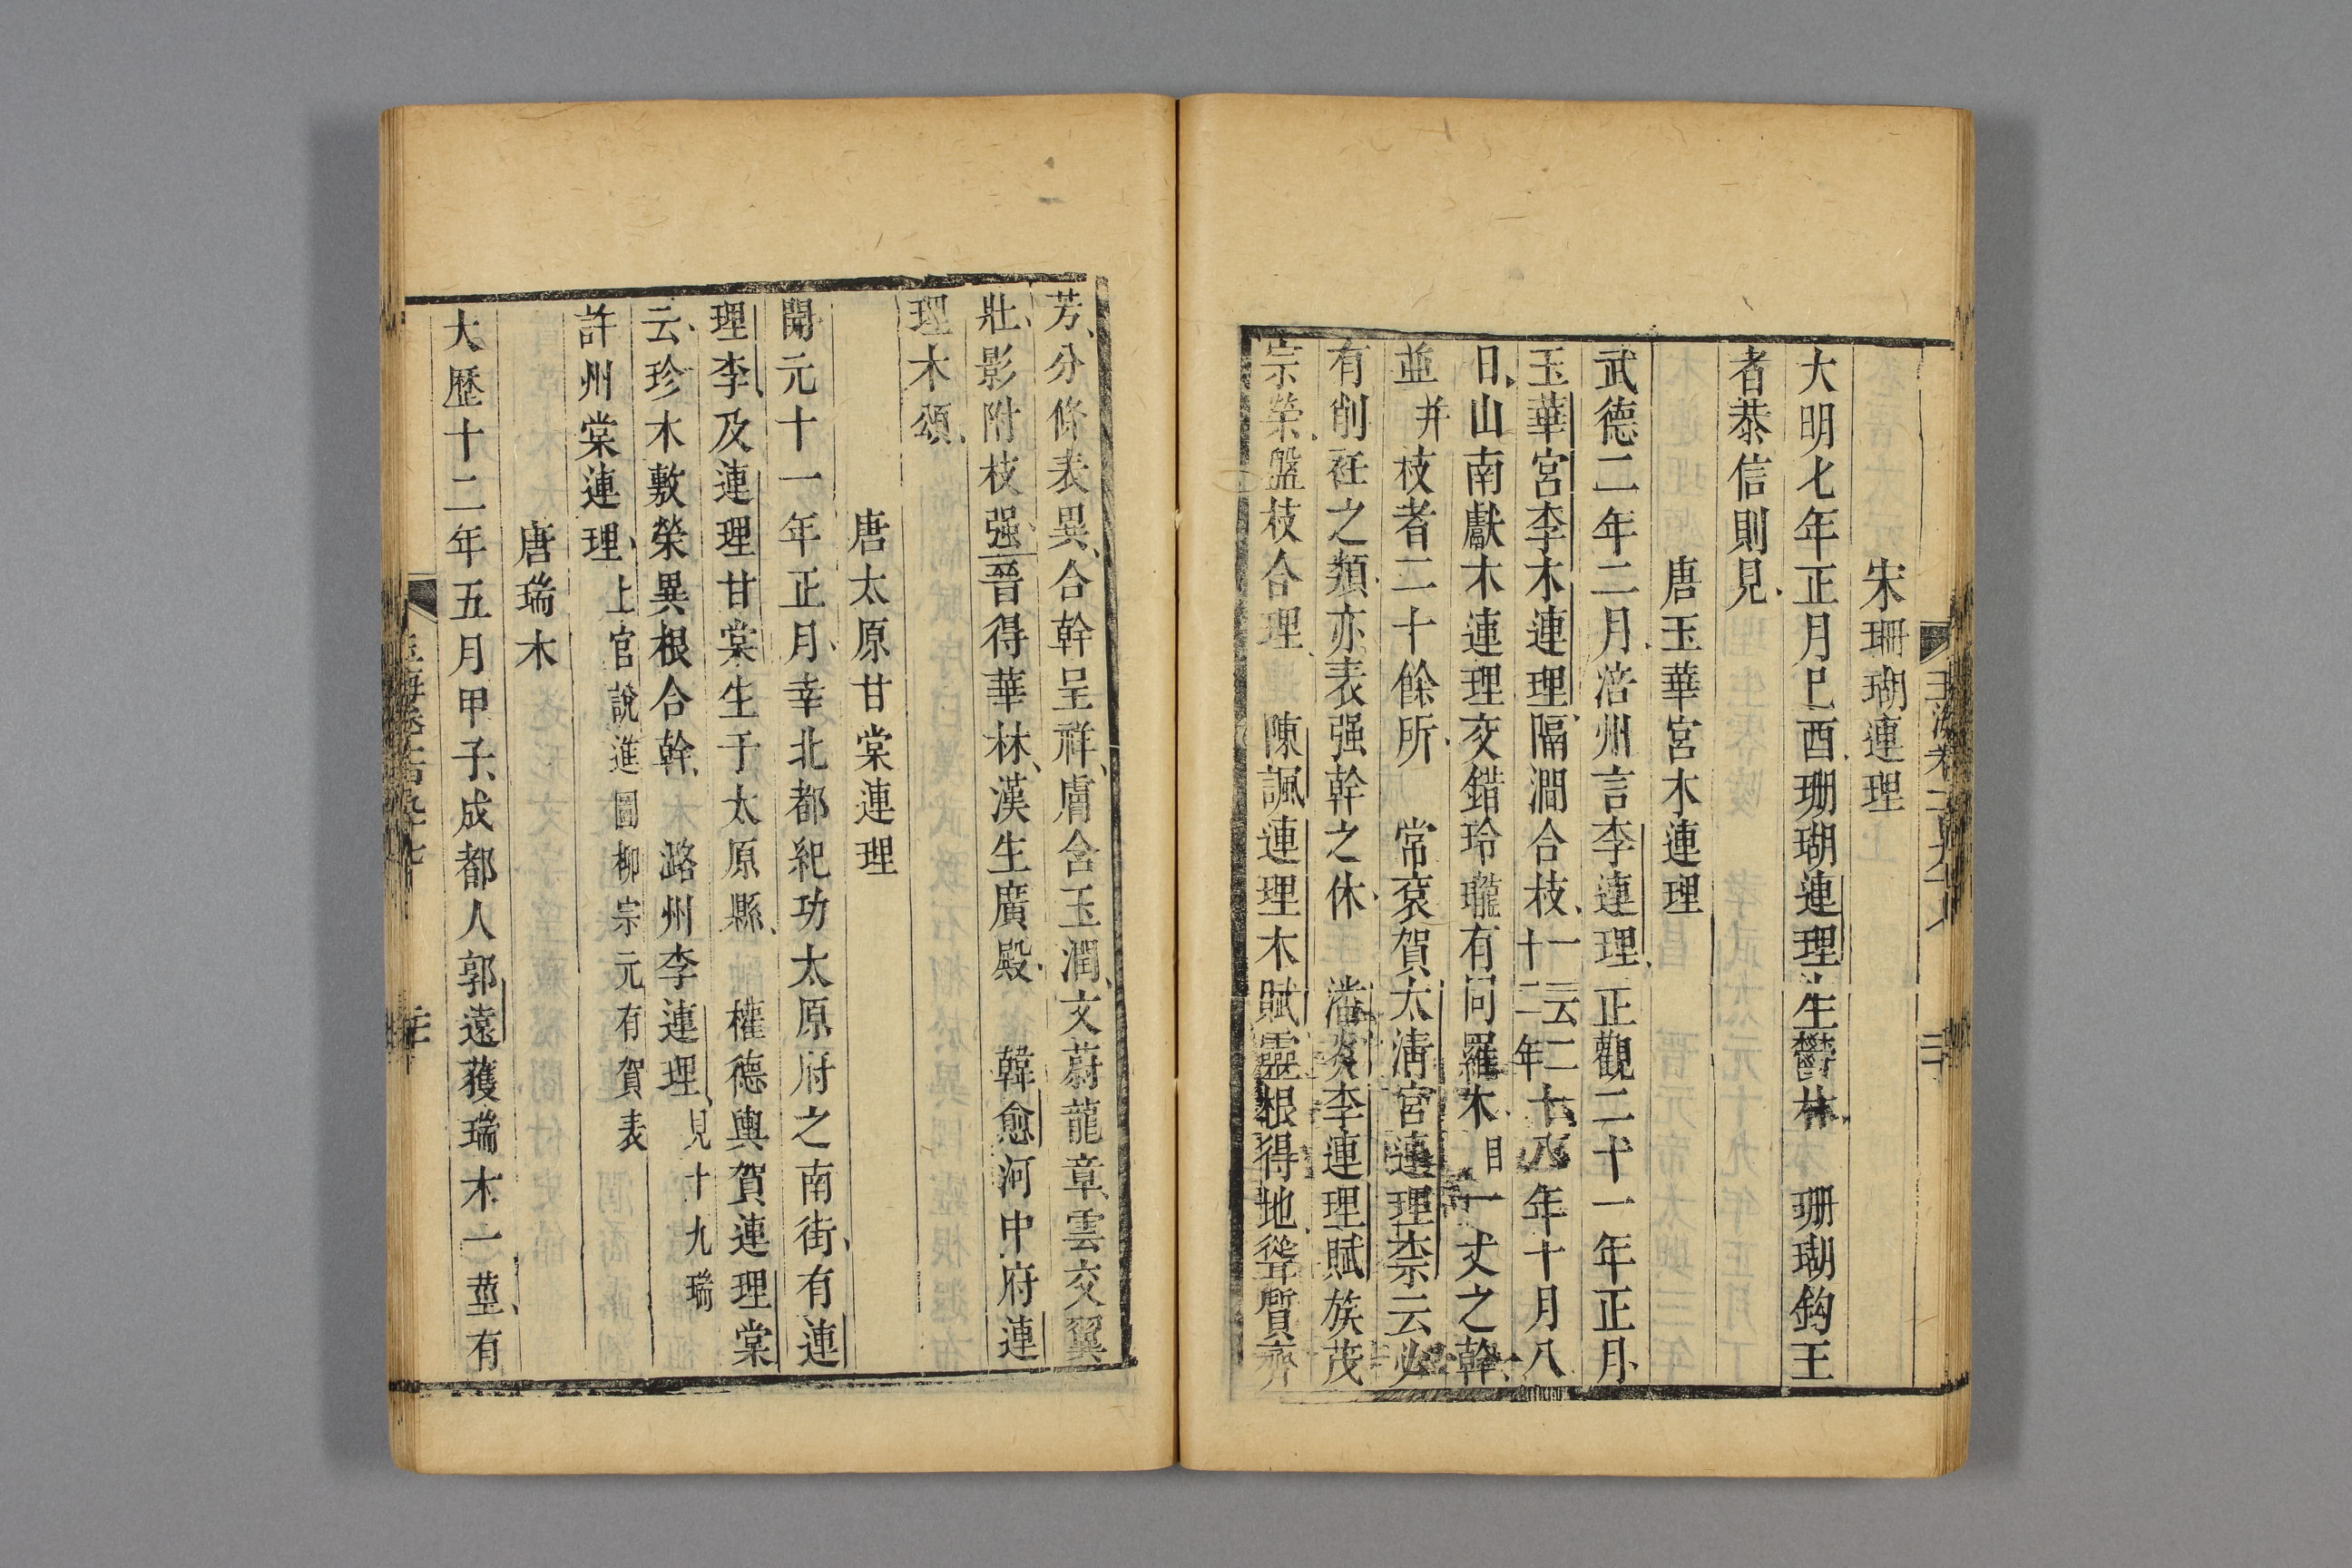 宋珊瑚連理
大明七年正月巳酉珊瑚連理生鬱林 珊瑚鈎王
者恭信則見
唐玉華宮木連理
武德二年二月涪州言李連理正觀二十一年正月
玉華宮李木連理隔澗合枝一云二十八年十月八
十二年
日山南獻木連理交錯玲瓏有同羅木目一丈之幹
並并枝者二十餘所 常袞賀太清宮連理柰云必
有削衽之類亦表强幹之休 潘炎李連理賦族茂
宗榮盤枝合理 陳諷連理木賦靈根得地聳質齊
芳分條表異合幹呈祥膚含玉潤文蔚龍章雲交翼
壯影附枝强晉得華林漢生廣殿 韓愈河中府連
理木頌
唐太原甘棠連理
開元十一年正月幸北都紀功太原府之南街有連
理李及連理甘棠生于太原縣 權德輿賀連理棠
云珍木敷榮異根合幹 潞州李連理見十九瑞
許州棠連理上官說進圖柳宗元有賀表
唐瑞木
大歷十二年五月甲子成都人郭遠獲瑞木一莖有